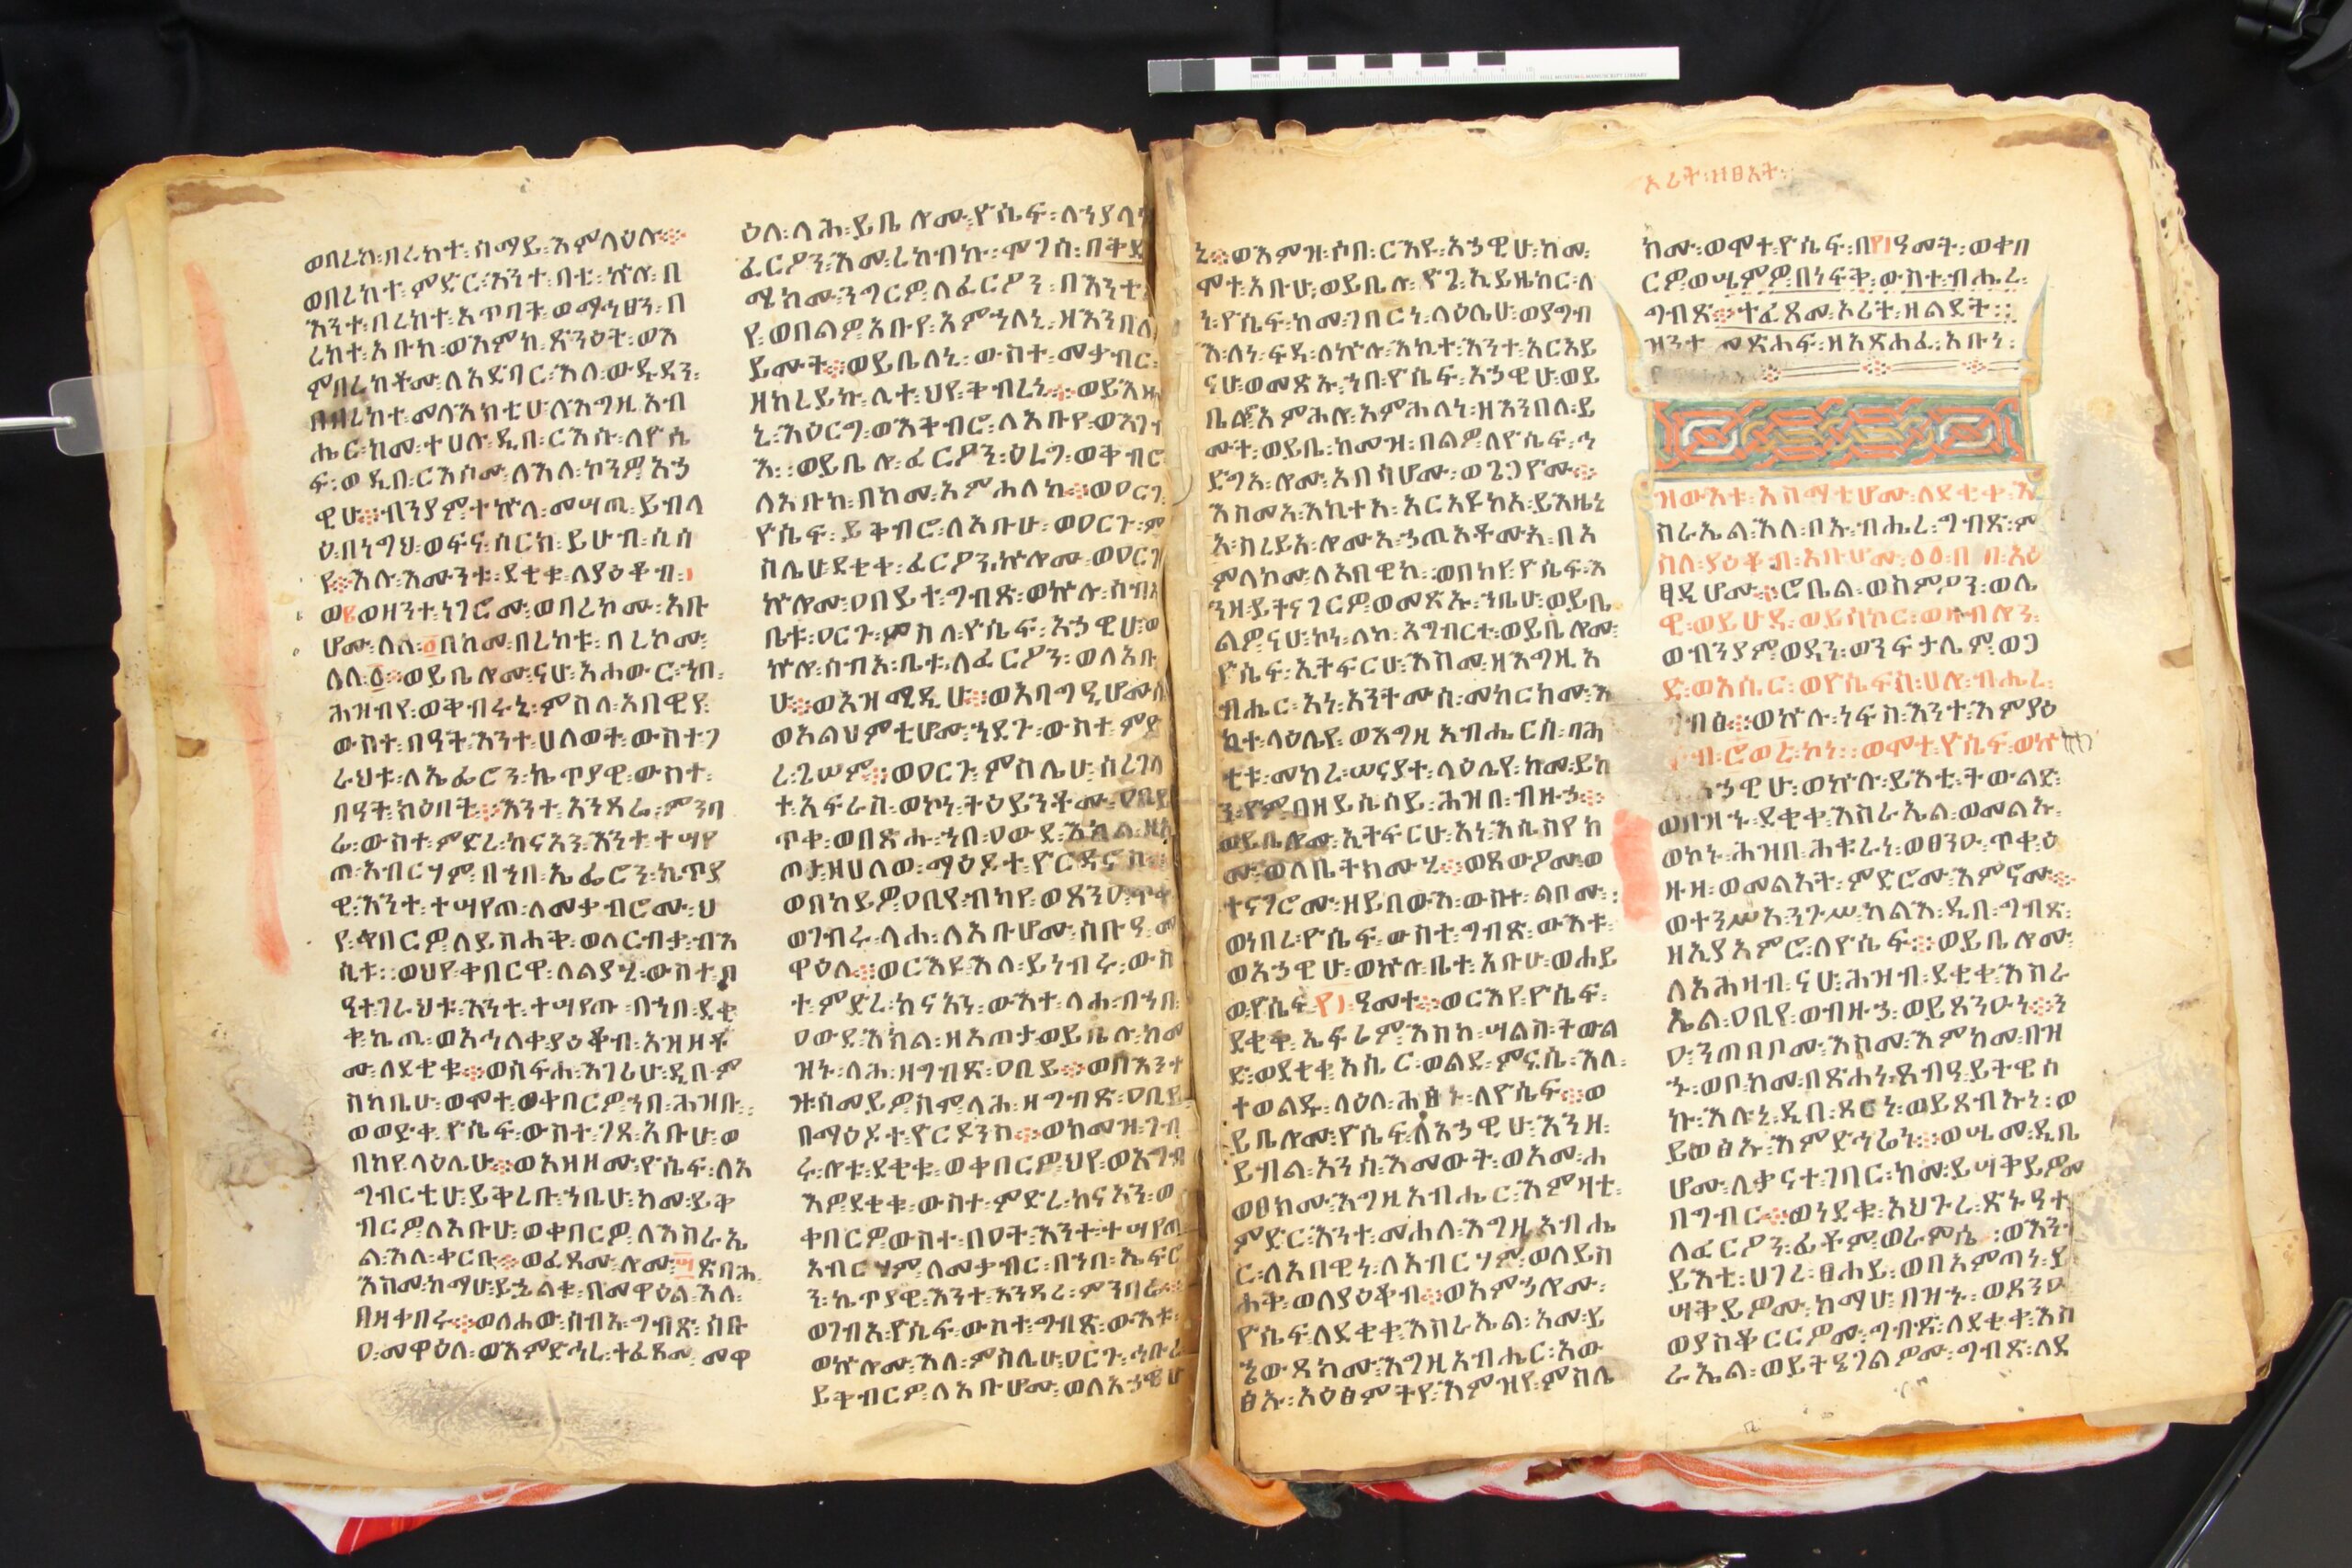 ወበረከ፡በረከተ፡ሰማይ፡እምላዕሉ፨
ወበረከተ፡ምድር፡እንተ፡በቲ፡ኵሉ፡በ
እንተ፡በረከተ፡አጥባት፡ወማኅፀን፡በ
ረከተ፡አቡከ፡ወእምከ፡ጸንዕት፡ወእ
ምበረከቶሙ፡ለአድባር፡እለ፡ውዱዳን፡
በበረከተ፡መላእክቲሁ፡ለእግዚአብ
ሔር፡ከመ፡ተሀሉ፡ዲበ፡ርእሱ፡ለዮሴ
ፍ፡ወዲበ፡ርእሶሙ፡ለእለ፡ኮንዎ፡አኃ
ዊሁ፨ብንያም፡ተኵላ፡መሣጢ፡ይብላ
ዕ፡በነግህ፡ወፍና፡ሰርክ፡ይሁብ፡ሲሳ
የ፨እሉ፡እሙንቱ፡ደቂቁ፡ለያዕቆብ፡፲
ወ፪ወዘንተ፡ነገሮሙ፡ወባረኮሙ፡አቡ
ሆሙ፡ለለ፩በከመ፡በረከቱ፡ባረኮሙ፡
ለለ፩፨ወይቤሎሙ፡ናሁ፡አሐውር፡ኀበ፡
ሕዝብየ፡ወቅብሩኒ፡ምስለ፡አበዊየ፡
ውስተ፡በዓት፡እንተ፡ሀለወት፡ውስተ፡ገ
ራህቱ፡ለኤፌሮን፡ኬጥያዊ፡ውስተ፡
በዓት፡ካዕበት፨እንተ፡አንጻረ፡ምንባ
ሬ፡ውስተ፡ምድረ፡ከናአን፡እንተ፡ተሣየ
ጠ፡አብርሃም፡በኀበ፡ኤፌሮን፡ኬጥያ
ዊ፡እንተ፡ተሣየጠ፡ለመቃብሮሙ፡ህ
የ፡ቀበርዎ፡ለይስሐቅ፡ወለርብቃ፡ብእ
ሲቱ፡፡ወህየ፡ቀበርዋ፡ለልያሂ፡ውስተ፡በ
ዓተ፡ገራህቱ፡እንተ፡ተሣየጡ፡በኀበ፡ደቂ
ቀ፡ኬጢ፡ወአኅለቀ፡ያዕቆብ፡አዝዞቶ
ሙ፡ለደቂቁ፨ወሰፍሐ፡እገሪሁ፡ዲበ፡ም
ስካቤሁ፡ወሞተ፡ወቀበርዎ፡ኀበ፡ሕዝቡ፡፡
ወወድቀ፡ዮሴፍ፡ውስተ፡ገጸ፡አቡሁ፡ወ
በከየ፡ላዕሌሁ፨ወአዘዞሙ፡ዮሴፍ፡ለአ
ግብርቲሁ፡ይቅረቡ፡ኀቤሁ፡ከመ፡ይቅ
ብርዎ፡ለአቡሁ፡ወቀበርዎ፡ለእስራኤ
ል፡እለ፡ቀርቡ፨ወፈጸሙ፡ሎሙ፡፵ጽባሕ፡
እስመ፡ከማሁ፡ይኄልቁ፡በመዋዕል፡እለ፡
በዘቀበሩ፨ወላሐው፡ሰብአ፡ግብጽ፡ሰቡ
ዐ፡መዋዕለ፡ወእምድኅረ፡ተፈጸመ፡መዋ
ዕለ፡ላሕ፡ይቤሎሙ፡ዮሴፍ፡ለኀያላነ
ፈርዖን፡እመ፡ረከብኩ፡ሞገሰ፡በቅድ
ሜክሙ፡ንግርዎ፡ለፈርዖን፡በእንቲ
የ፡ወበልዎ፡አቡየ፡አምኀለኒ፡ዘእንበለ
ይሙት፨ወይቤለኒ፡ውስተ፡መቃብር፡
ዘከረይኩ፡ሊተ፡ህየ፡ቅብረኒ፨ወይእዜ
ኒ፡እዕርግ፡ወእትብሮ፡ለአቡየ፡ወእገብ
እ፡፡ወይቤሎ፡ፈርዖን፡ዕረግ፡ወቅብር
ለአቡከ፡በከመ፡አምሐለከ፨ወዐርገ
ዮሴፍ፡ይቅብሮ፡ለአቡሁ፡ወዐርጉ፡ም
ስሌሁ፡ደቂቀ፡ፈርዖን፡ኵሎሙ፡ወዐርገ
ኵሎሙ፡ዐበይተ፡ግብጽ፡ወኵሉ፡ሰብአ
ቤቱ፡ዐርጉ፡ምስለ፡ዮሴፍ፡አኃዊሁ፡ወ
ኵሉ፡ሰብአ፡ቤቱ፡ለፈርዖን፡ወለአቡ
ሁ፨ወአዝሚዲሁ፨ወአባግዒሆሙ
ወአልህምቲሆሙ፡ኀደጉ፡ውስተ፡ምድ
ረ፡ጌሤም፨ወዐርጉ፡ምስሌሁ፡ሰረገላ
ት፡አፍራስ፡ወኮነ፡ትዕይንቶሙ፡ዐቢይ
ጥቀ፡ወበጽሑ፡ኀበ፡ዐውደ፡እክል፡ዘአ
ጠታ፡ዘሀለወ፡ማዕዶተ፡ዮርዳኖስ፨
ወበከይዎ፡ዐቢየ፡ብካየ፡ወጸንዐ፡ጥቀ
ወገብሩ፡ላሐ፡ለአቡሆሙ፡ሰቡዓ፡መ
ዋዕለ፨ወርእዩ፡እለ፡ይነብሩ፡ውስ
ተ፡ምድረ፡ከናአን፡ውእተ፡ላሐ፡በኀበ፡
ዐውደ፡እክል፡ዘአጠታ፡ወይቤሉ፡ከመ
ዝኑ፡ላሕ፡ዘግብጽ፡ዐቢይ፨ወበእንተ
ዝ፡ሰመይዎ፡ስሞ፡ላሐ፡ዘግብጽ፡ዐቢይ
በማዕዶተ፡ዮርዳንስ፨ወከመዝ፡ገብ
ሩ፡ሎቱ፡ደቂቁ፡ወቀበርዎ፡ህየ፡ወአግብ
እዎ፡ደቂቁ፡ውስተ፡ምድረ፡ከናአን፡ወ
ቀበርዎ፡ውስተ፡በዐት፡እንተ፡ተሣየጠ
አብርሃም፡ለመቃብር፡በኀበ፡ኤፍሮ
ን፡ኬጥያዊ፡እንተ፡አንጻረ፡ምንባሬ፨
ወገብአ፡ዮሴፍ፡ውስተ፡ግብጽ፡ውእቱ፡
ወኵሎሙ፡እለ፡ምስሌሁ፡ዐርጉ፡ኅቡረ
ይቅብርዎ፡ለአቡሆሙ፡ወለአኃዊሁ
ኦሪት፡ዘፀአት፡
ኒ፨ወእምዝ፡ሶበ፡ርእዩ፡አኃዊሁ፡ከመ፡
ሞተ፡አቡሁ፡ወይቤሉ፡ዮጊ፡ኢይዜከር፡ለ
ነ፡ዮሴፍ፡ከመ፡ገበርነ፡ላዕሌሁ፡ወያገብ
እ፡ለነ፡ፍዳ፡ለኵሉ፡እኪት፡እንተ፡አርአይ
ናሁ፡ወመጽኡ፡ኀበ፡ዮሴፍ፡አኃዊሁ፡ወይ
ቤሎ፡አምሕሉ፡አምሕለነ፡ዘእንበለ፡ይ
ሙት፡ወይቤ፡ከመዝ፡በልዎ፡ለዮሴፍ፡ኅ
ድግአ፡ሎሙ፡አበሳሆሙ፡ወጌጋዮሙ፨
እስመአ፡እኪተአ፡አርአዩከአ፡ይእዜኒ
አ፡ስረይአ፡ሎሙአ፡ኃጢአቶሙአ፡በአ
ምላኮሙ፡ለአበዊከ፡፡ወበከየ፡ዮሴፍ፡እ
ንዘ፡ይትናገርዎ፡ወመጽኡ፡ኀቤሁ፡ወይቤ
ልዎ፡ናሁ፡ኮነ፡ለከ፡አግብርተ፡ወይቤሎሙ፡
ዮሴፍ፡ኢትፍርሁ፡እስመ፡ዘእግዚአ
ብሔር፡አነ፡አንትሙሰ፡መከርክሙ፡እ
ኪተ፡ላዕሌየ፡ወእግዚአብሔርሰ፡ባሕ
ቲቱ፡መከረ፡ሠናያተ፡ላዕሌየ፡ከመ፡ይኩ
ን፡ዮም፡በዘይሴሰይ፡ሕዝብ፡ብዙኃ፨
ወይቤሎሙ፡ኢትፍርሁ፡አነ፡እሴስየክ
ሙ፡ወለቤትክሙሂ፨ወጸውዖሙ፡ወ
ተናገሮሙ፡ዘይበውእ፡ውስተ፡ልቦሙ፡፡
ወነበረ፡ዮሴፍ፡ውስተ፡ግብጽ፡ውእቱ፡
ወአኃዊሁ፡ወኵሉ፡ቤተ፡አቡሁ፡ወሐይ
ወ፡ዮሴፍ፡፻፲ዓመተ፨ወርእየ፡ዮሴፍ፡
ደቂቀ፡ኤፍሬም፡እስከ፡ሣልስ፡ትውል
ድ፡ወደቂቀ፡አሴር፡ወልደ፡ምናሴ፡እለ፡
ተወልዱ፡ላዕለ፡ሕፅኑ፡ለዮሴፍ፨ወ
ይቤሎሙ፡ዮሴፍ፡ለአኃዊሁ፡እንዘ፡
ይብል፡አንሰ፡እመውት፡ወአመ፡ሐ
ወፀክሙ፡እግዚአብሔር፡እምዛቲ፡
ምድር፡እንተ፡መሐለ፡እግዚአብሔ
ር፡ለአበዊነ፡ለአብርሃም፡ወለይስ
ሐቅ፡ወለያዕቆብ፨ወአምኃሎሙ፡
ዮሴፍ፡ለደቂቀ፡እስራኤል፡አመ፡ይ
ኄውጸክሙ፡እግዚአብሔር፡አው
ፅኡ፡አዕፅምትየ፡እምዝየ፡ምስሌ
ክሙ፡ወሞተ፡ዮሴፍ፡በ፻፲ዓመት፡ወቀበ
ርዎ፡ወሤምዎ፡በነፍቅ፡ውስተ፡ብሔረ፡
ግብጽ፨ተፈጸመ፡ኦሪት፡ዘልደት፡፡
ዝንቱ፡መጽሐፍ፡ዘአጽሐፈ፡አቡነ፡
ዝውእቱ፡አስማቲሆሙ፡ለደቂቀ፡እ
ስራኤል፡እለ፡ቦኡ፡ብሔረ፡ግብጽ፡ም
ስለ፡ያዕቆብ፡አቡሆሙ፡
ፃዲሆሙ፨ሮቤል፡ወስምዖን፡ወሌ
ዊ፡ወይሁዳ፡ወይሳኮር፡ወዛብሎን፡
ወብንያም፡ወዳን፡ወንፍታሌም፡ወጋ
ድ፡ወአሴር፡ወዮሴፍሰ፡ሀሎ፡ብሔረ፡
ግብፅ፨ወኵሉ፡ነፍስ፡እንተ፡እምያዕ
ኮነ፡፡ወሞተ፡ዮሴፍ፡ወኵ
አኃዊሁ፡ወኵሉ፡ይእቲ፡ትውልድ፡
ወበዝኁ፡ደቂቀ፡እስራኤል፡ወመልኡ፡
ወኮኑ፡ሕዝበ፡ሕቱራነ፡ወፀንዑ፡ጥቀ፡ዕ
ዙዘ፡ወመልአት፡ምድሮሙ፡እምኔሙ፨
ወተንሥአ፡ንጉሥ፡ካልእ፡ዲበ፡ግብጽ፡
ዘኢያአምሮ፡ለዮሴፍ፨ወይቤሎሙ፡
ለአሕዛብ፡ናሁ፡ሕዝብ፡ደቂቀ፡እስራ
ኤል፡ዐቢየ፡ወብዙኃ፡ወይጸንዑነ፨ን
ዑ፡ንጠበቦሙ፡እስመ፡እምከመ፡በዝ
ኁ፡ወቦ፡ከመ፡በጽሐነ፡ጸብዓ፡ይትዌሰ
ኩ፡እሉኒ፡ዲበ፡ጸርነ፡ወይጸብኡነ፡ወ
ይወፅኡ፡እምድኅሬነ፨ወሤመ፡ዲቤ
ሆሙ፡ሊቃናተ፡ገባር፡ከመ፡ይሣቅይዎሙ
በግብር፨ወነደቁ፡አህጉረ፡ጽኑዓተ
ለፈርዖን፡ፊቶም፡ወራምሴ፡ወእን፡
ይእቲ፡ሀገረ፡ፀሐይ፡ወበአምጣነ፡ይ
ሣቅይዎሙ፡ከማሁ፡በዝኁ፡ወጸንዑ
ወያስቆርርዎሙ፡ግብጽ፡ለደቂቀ፡እስ
ራኤል፡ወይትዔገልዎሙ፡ግብጽ፡ለደ